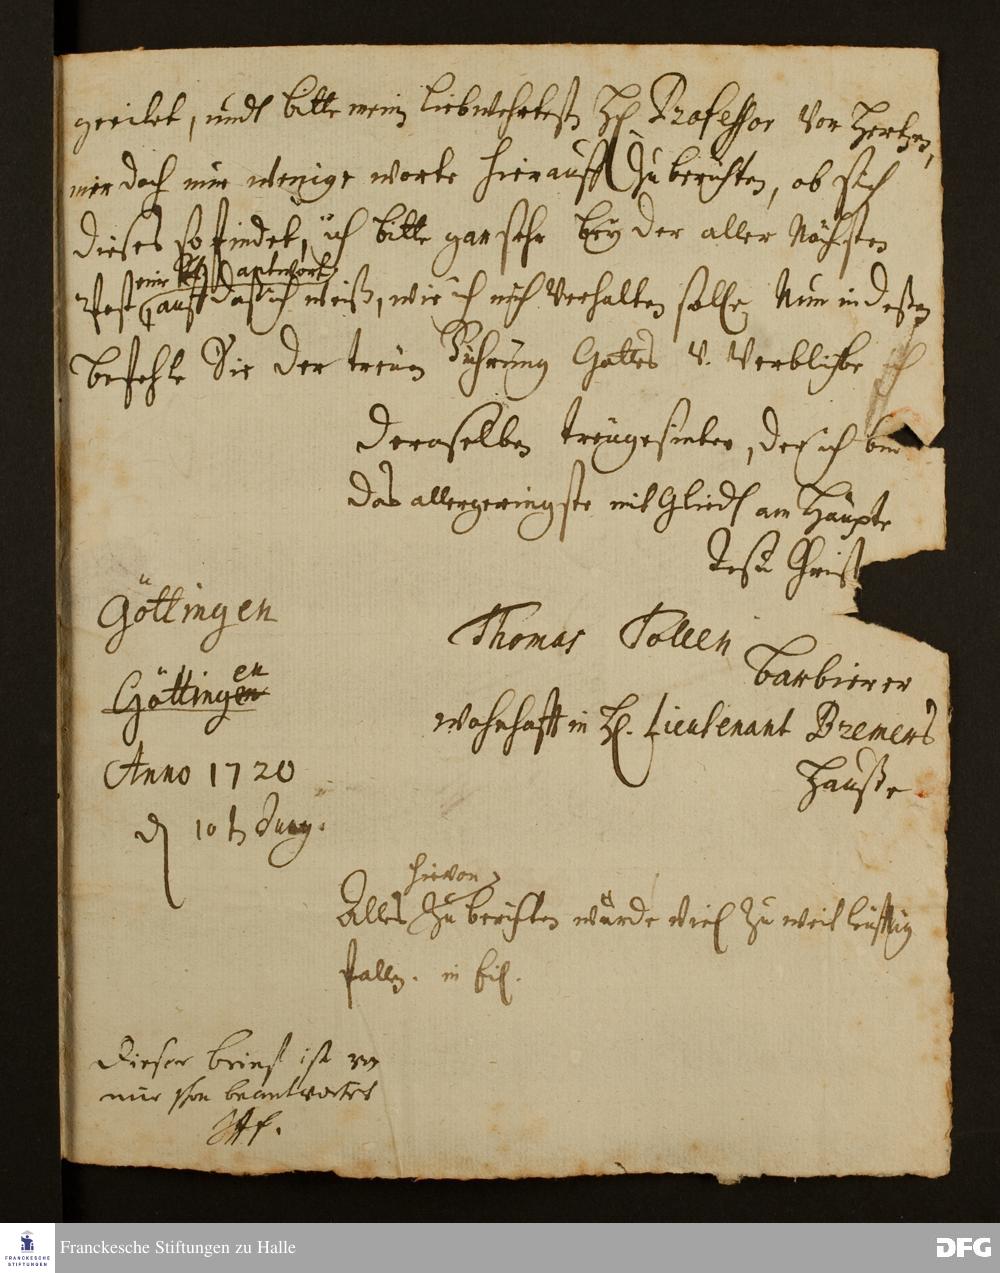 geeilet, undt bitte mein liebwehrtesten H. Professor von Hertzen,
mir doch nur wenige worte hierauff zu berichten, ob sich
dieses so findet, ich bitte gar sehr bey der aller Nächsten
mir antwort
Post auff daß ich weiß, wie ich mich verhalten solle. Nun indeßen
befehle Sie der treuen Führung Gottes v. verbleibe ich
Deroselben treugesinter, der ich bin
das allergeringste mit Gliedt am Haupte
Jesu Christ
Göttingen
Thomas Pollen
Barbierer
Göttingen
wohnhafft in H. Lieutenant Bremers
Hauße
Anno 1720
d 10 t Juny.
hievon
Alles zu berichten würde viel zu weitleufftig
fallen. in Eil.
Dieser brieff ist von
mir schon beantwortet
Franckesche Stiftungen zu Halle
FRANCKESCHE
STIFTUNGEN
DFG